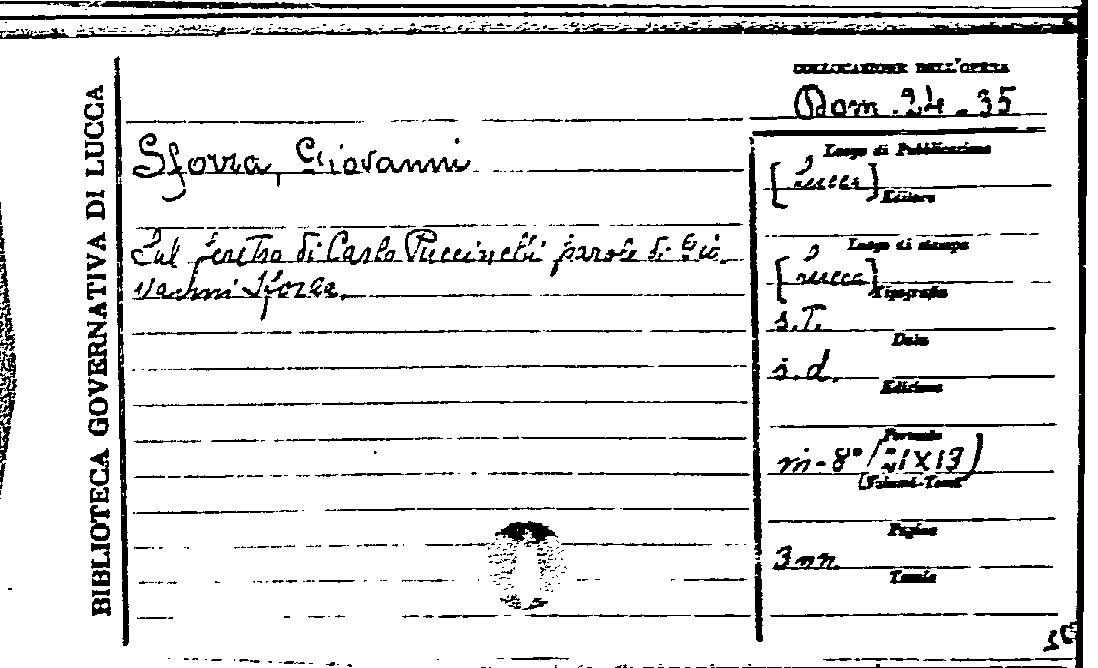 BIBLIOTECA GOVERNATIVA DI LUCCA
COLLOCAZIONE DELL'OPERA
Dom. 24-35
Sforza, Giovanni
Sul feretro di Carlo Puccinelli parole di Gio-
vanni Sforza.
Luogo di Pubblicazione
[Lucca]
Editore
Luogo di stampa
[Lucca]
Tipografia
s.T.
Data
s.d.
Edizione
Formato
in-8° (21X13)
(Volumi-Tomi)
Pagine
3 nn.
Tavole